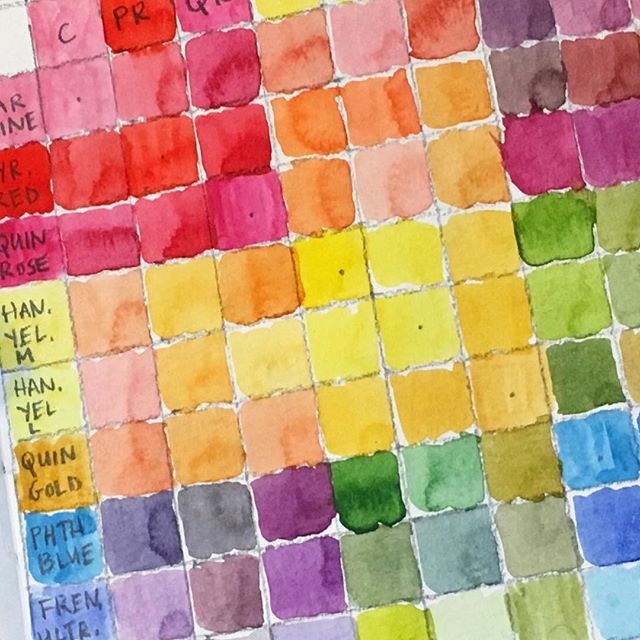 C
PR
AR
INE
YR.
RED
QUIN
ROSE
HAN.
YEL.
M
HAN.
YEL
L
QUIN
GOLD
PHTH
BLUE
FREN.
ULTR.